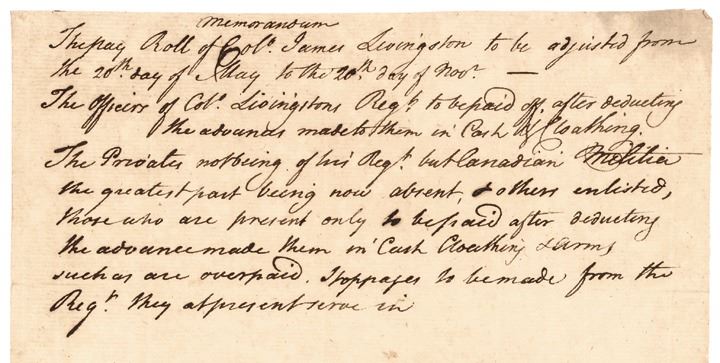 Memorandum
The pay Roll of Col.º James Livingston to be adjusted from
the 20th. day of May to the 20th. day of Novr. —
The Officers of Col.º Livingstons Regt. to be paid off after deducting
the advances made to them in Cash & Cloathing.
The Privates not being of his Regt. but Canadian Militia
the greatest part being now absent, & others enlisted,
those who are present only to be paid after deducting
the advance made them in Cash Cloathing & Arms
such as are overpaid. Stoppages to be made from the
Regt. they at present serve in